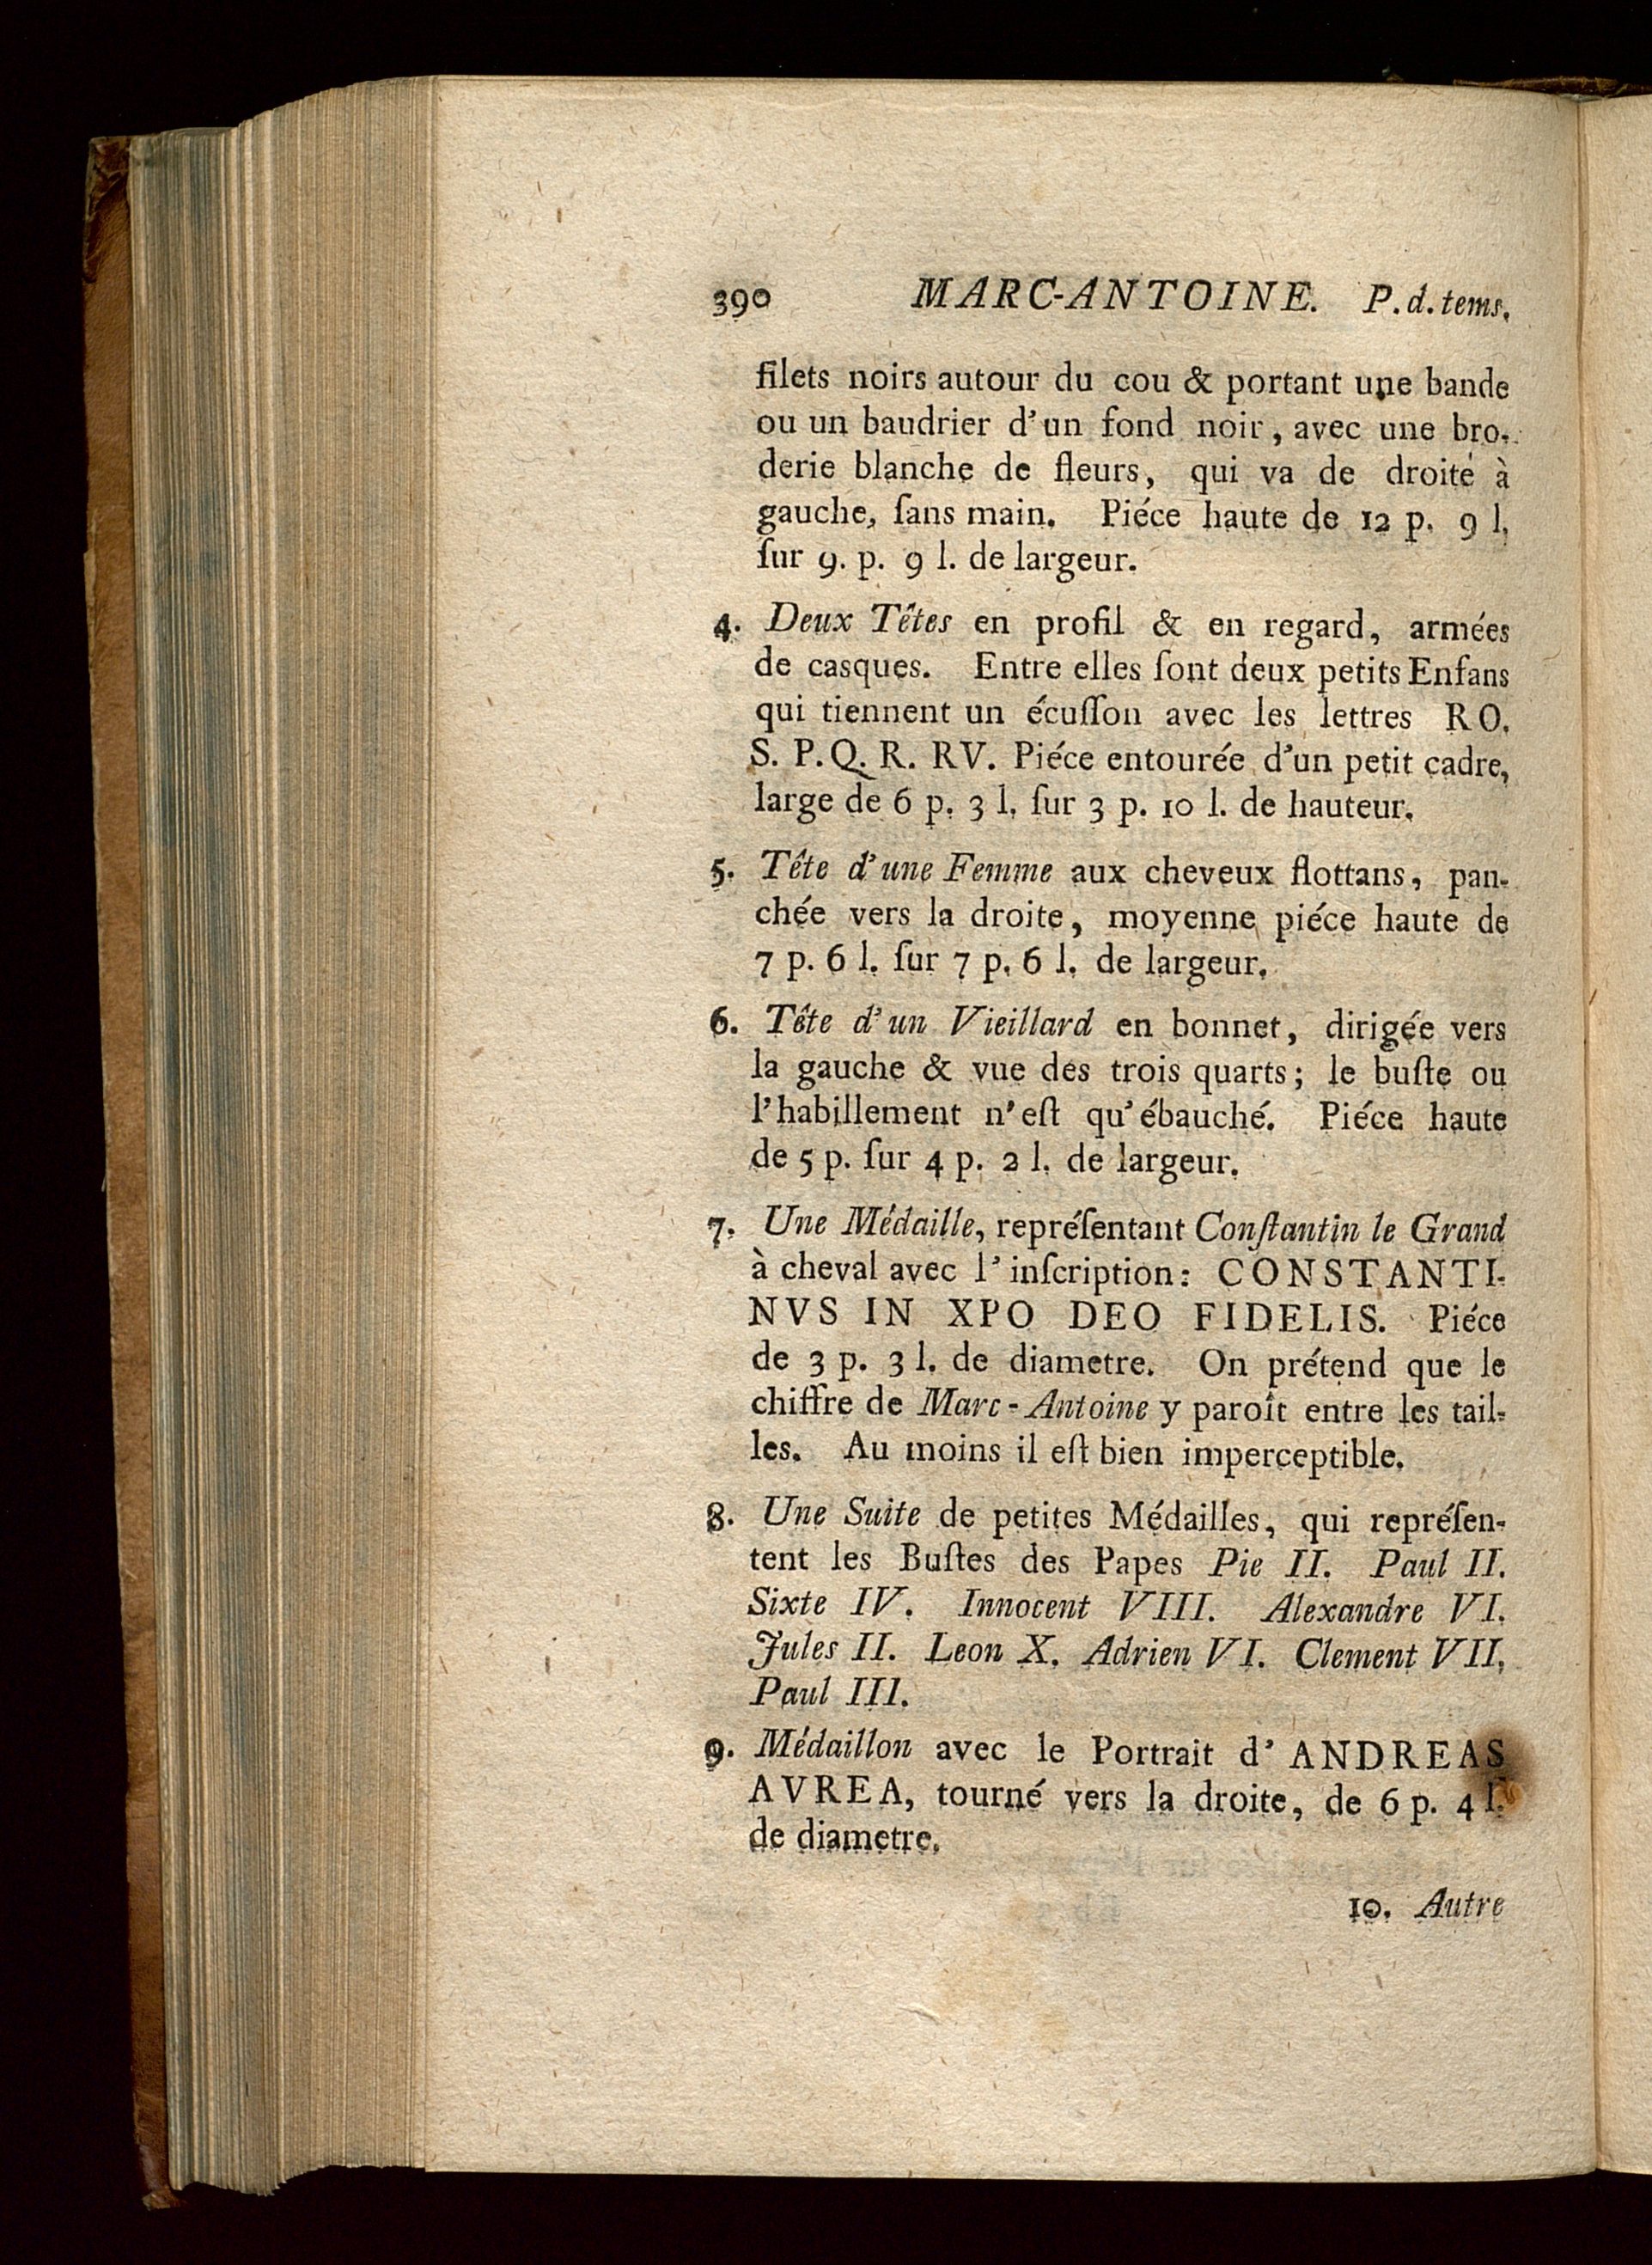 390 MARC-ANTOINE. P. d. tems.
filets noirs autour du cou & portant une bande
ou un baudrier d'un fond noir, avec une bro-
derie blanche de fleurs, qui va de droite à
gauche, ſans main. Piéce haute de 12 p. 9 l.
ſur 9. p. 9 l. de largeur.
4. Deux Têtes en profil & en regard, armées
de casques. Entre elles ſont deux petits Enfans
qui tiennent un écuſſon avec les lettres RO.
S. P. Q. R. RV. Piéce entourée d'un petit cadre,
large de 6 p. 3 l. ſur 3 p. 10 l. de hauteur.
5. Tête d'une Femme aux cheveux flottans, pan-
chée vers la droite, moyenne piéce haute de
7 p. 6 l. ſur 7 p. 6 l. de largeur.
6. Tête d'un Vieillard en bonnet, dirigée vers
la gauche & vue des trois quarts; le buſte ou
l'habillement n'eſt qu'ébauché. Piéce haute
de 5 p. ſur 4 p. 2 l. de largeur.
7. Une Médaille, repréſentant Conſtantin le Grand
à cheval avec l'inſcription: CONSTANTI-
NVS IN XPO DEO FIDELIS. Piéce
de 3 p. 3 l. de diametre. On prétend que le
chiffre de Marc-Antoine y paroît entre les tail-
les. Au moins il eſt bien imperceptible.
8. Une Suite de petites Médailles, qui repréſen-
tent les Buſtes des Papes Pie II. Paul II.
Sixte IV. Innocent VIII. Alexandre VI.
Jules II. Leon X. Adrien VI. Clement VII.
Paul III.
9. Médaillon avec le Portrait d'ANDREAS
AVREA, tourné vers la droite, de 6 p. 4 l.
de diametre.
10. Autre